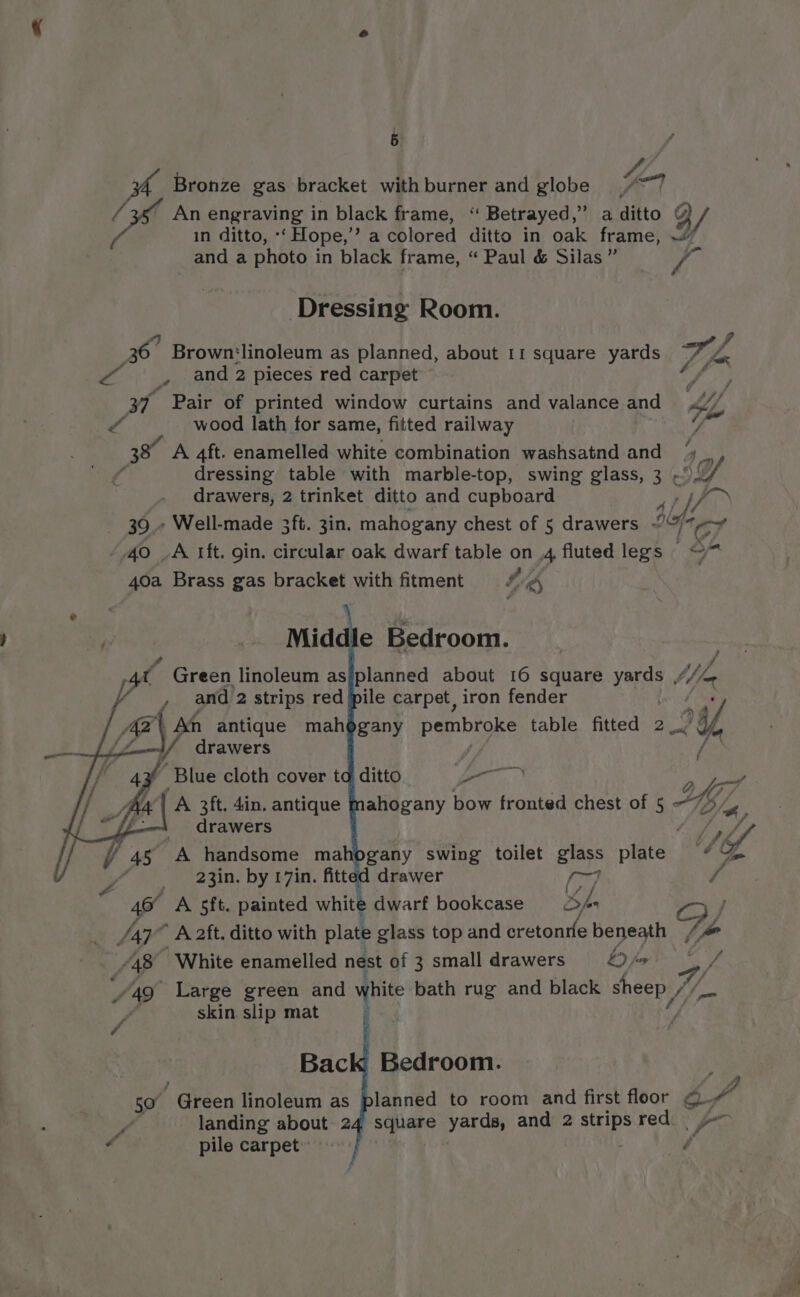 5
34 Bronze gas bracket with burner and globe
35 An engraving in black frame, “Betrayed,” a ditto
in ditto, “Hope,” a colored ditto in oak frame,
and a photo in black frame, “Paul & Silas”
Dressing Room.
36 Brown linoleum as planned, about 11 square yards
and 2 pieces red carpet
37 Pair of printed window curtains and valance and
wood lath for same, fitted railway
38 A 4ft. enamelled white combination washsatnd and
dressing table with marble-top, swing glass, 3
drawers, 2 trinket ditto and cupboard
39 Well-made 3ft. 3in. mahogany chest of 5 drawers
40 A 1ft. 9in. circular oak dwarf table on 4 fluted legs
40a Brass gas bracket with fitment
Middle Bedroom.
41 Green linoleum as planned about 16 square yards
and 2 strips red pile carpet, iron fender
42 An antique mahogany pembroke table fitted 2
drawers
43 Blue cloth cover to ditto
44 A 3ft. 4in. antique mahogany bow fronted chest of 5
drawers
45 A handsome mahogany swing toilet glass plate
23in. by 17in. fitted drawer
46 A 5ft. painted white dwarf bookcase
47 A 2ft. ditto with plate glass top and cretonne beneath
48 White enamelled nest of 3 small drawers
49 Large green and white bath rug and black sheep
skin slip mat
Back Bedroom.
50 Green linoleum as planned to room and first floor
landing about 24 square yards, and 2 strips red
pile carpet